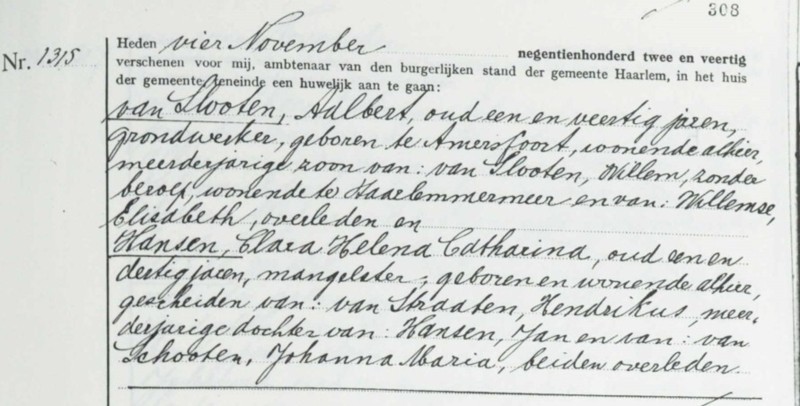 308
Nr. 1315
Heden vier November negentienhonderd twee en veertig
verschenen voor mij, ambtenaar van den burgerlijken stand der gemeente Haarlem, in het huis
der gemeente, teneinde een huwelijk aan te gaan:
van Slooten, Adlbert, oud een en veertig jaren,
grondwerker, geboren te Amersfoort, wonende alhier,
meerderjarige zoon van: van Slooten, Willem, zonder
beroep, wonende te Haarlemmermeer en van: Willemse,
Elisabeth, overleden en
Hansen, Clara Helena Catharina, oud een en
dertig jaren, mangelster, geboren en wonende alhier,
gescheiden van: van Straaten, Hendrikus, meer-
derjarige dochter van: Hansen, Jan en van: van
Schooten, Johanna Maria, beiden overleden.